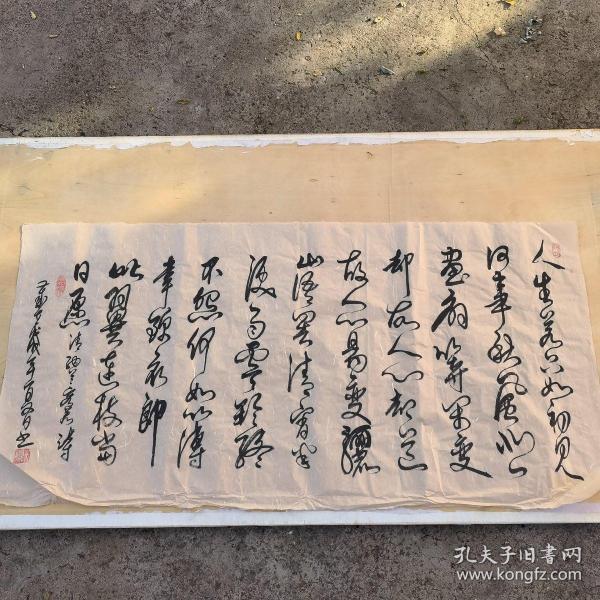 人生若只如初见
何事秋风悲
画扇等闲变
却故人心却道
故人心易变骊
山语罢清宵半
泪雨零铃终
不怨何如薄
幸锦衣郎
比翼连枝当
日愿 清纳兰容若诗
戊戌年夏月书
孔夫子旧书网
www.kongfz.com